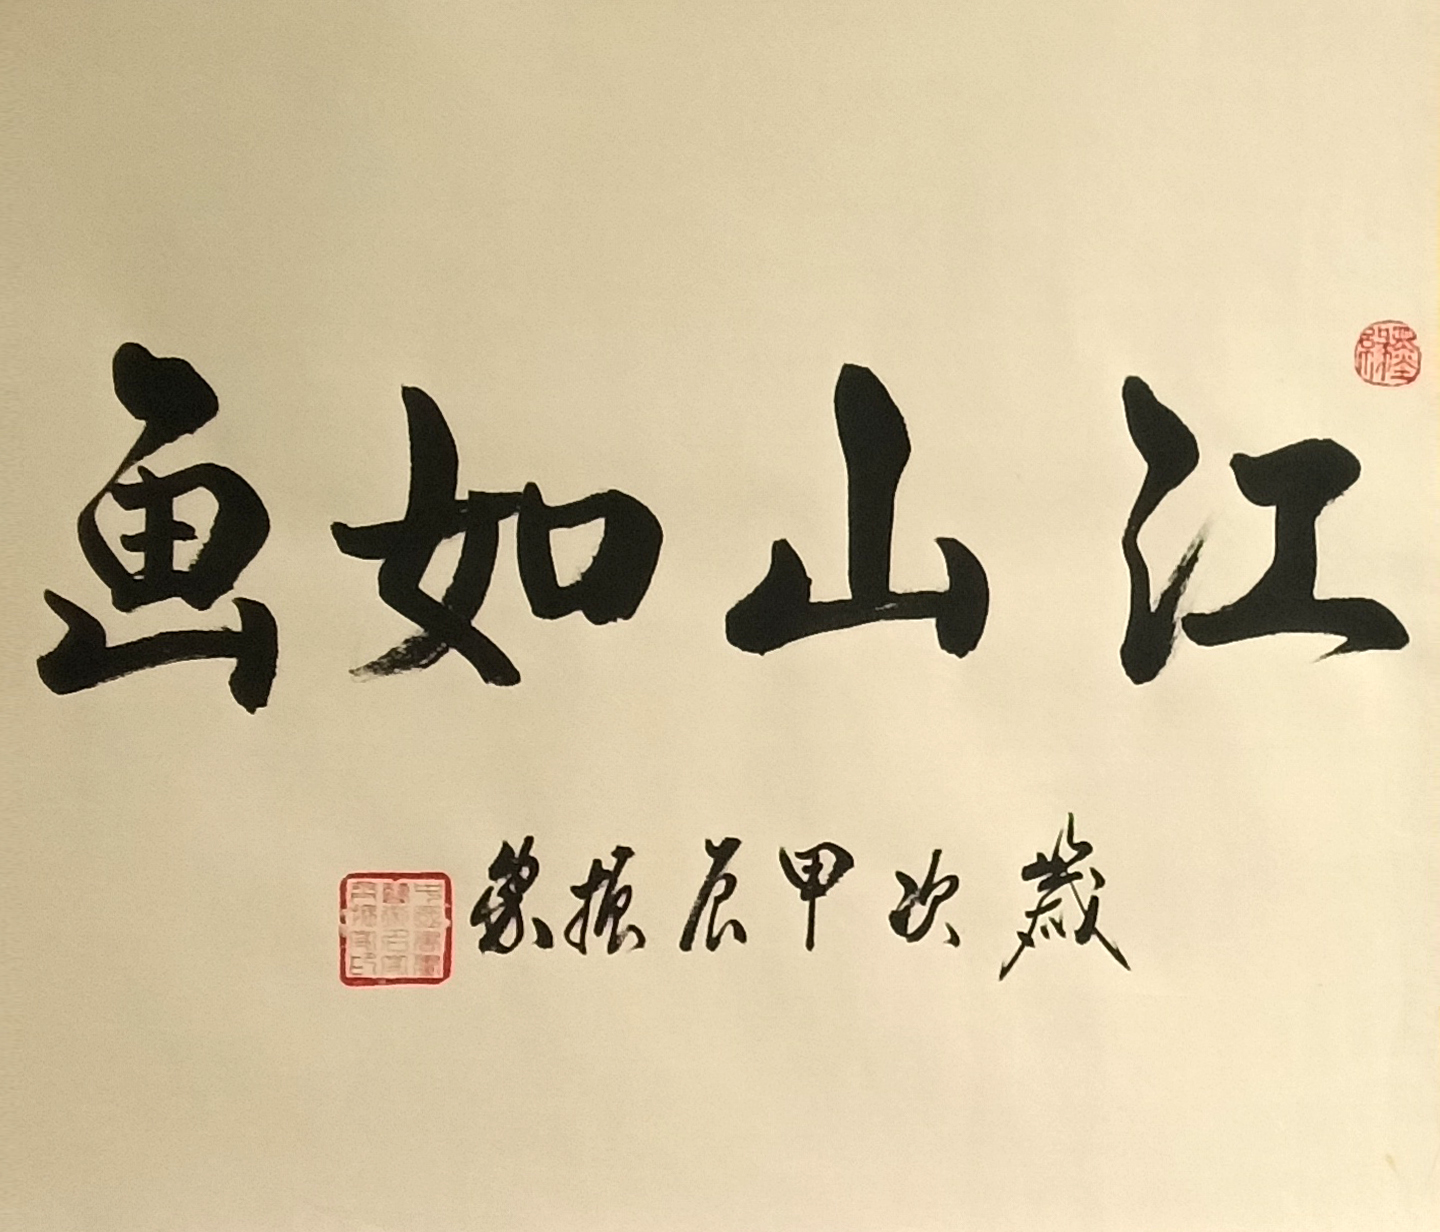 江山如画
歲次甲辰振